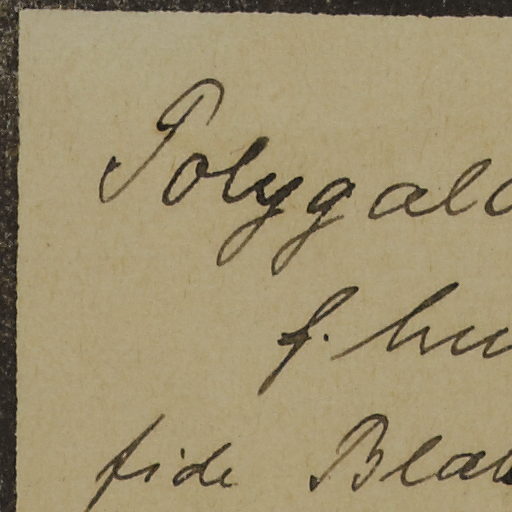 Polygala
f. hu
fide Blau